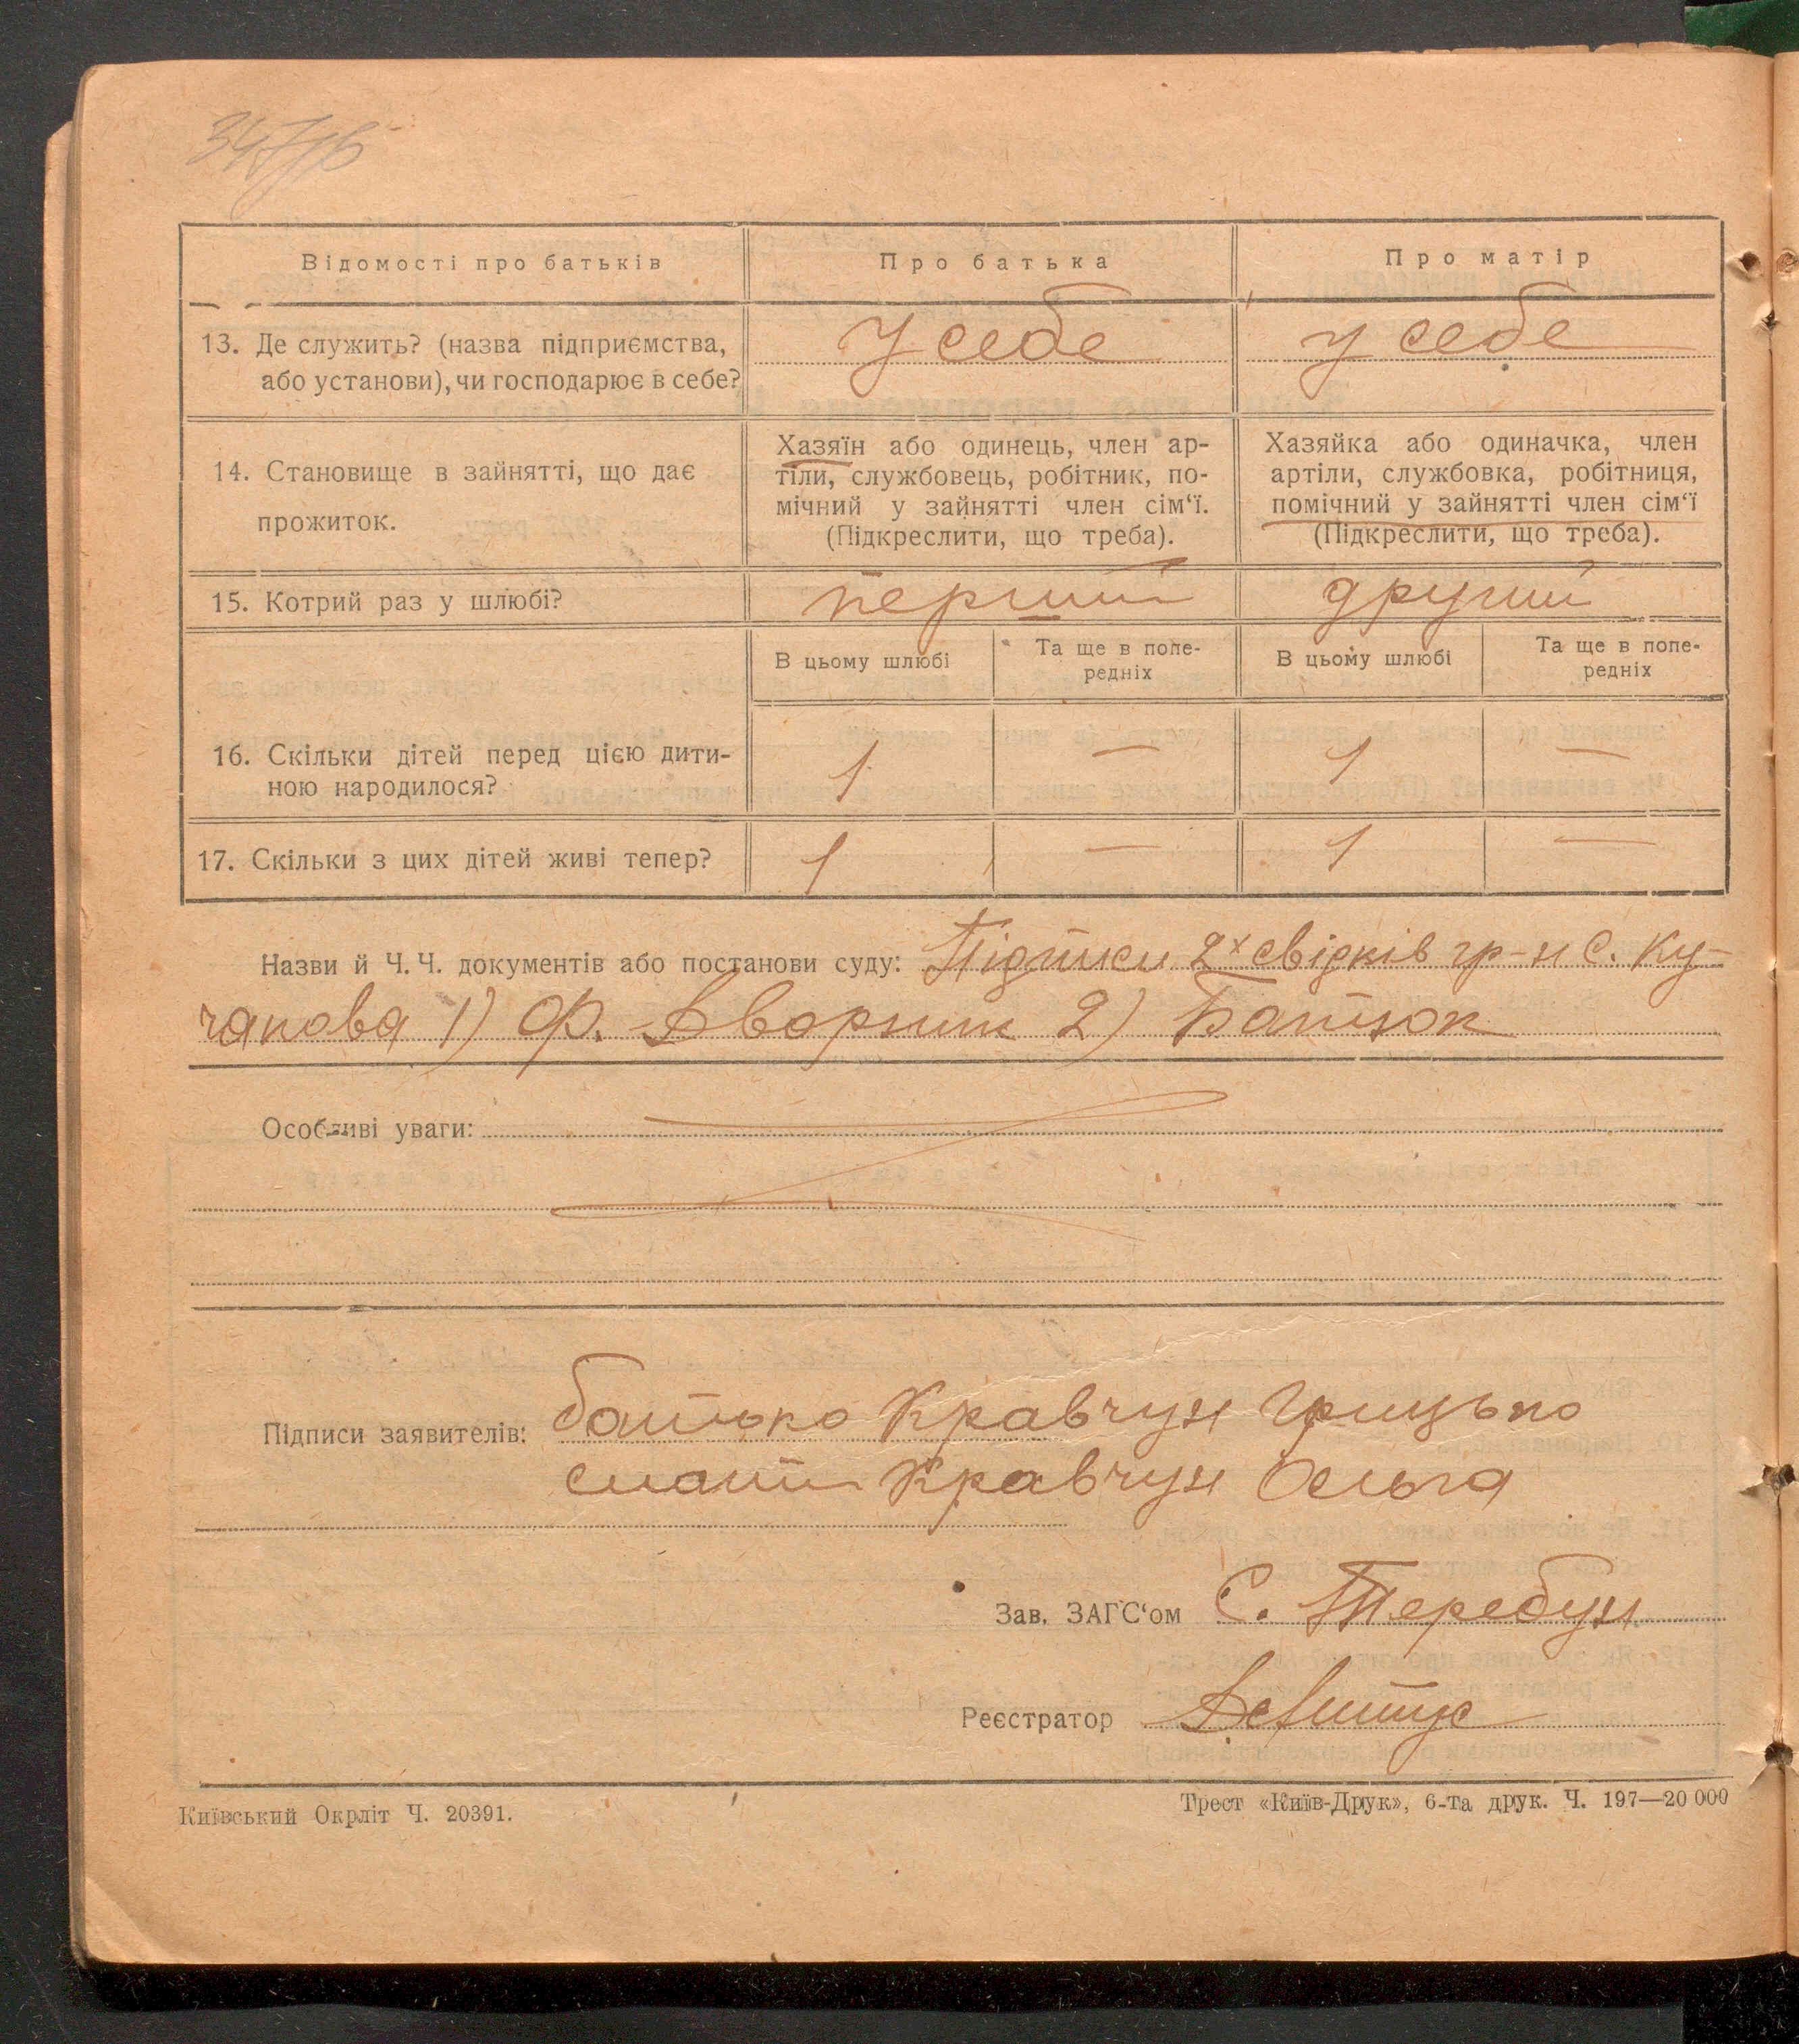 Відомості про батьків
Про батька
Про матір
13. Де служить? (назва підприємства,
або установи), чи господарює в себе?
У себе
у себе
14. Становище в зайнятті, що дає
прожиток.
Хазяїн або одинець, член ар-
тіли, службовець, робітник, по-
мічний у зайнятті член сім‘ї.
(Підкреслити, що треба).
Хазяйка або одиначка, член
артіли, службовка, робітниця,
помічний у зайнятті член сім‘ї
(Підкреслити, що треба).
15. Котрий раз у шлюбі?
перший
другий
В цьому шлюбі
Та ще в попе-
редніх
В цьому шлюбі
Та ще в попе-
редніх
16. Скільки дітей перед цією дити-
ною народилося?
1
—
1
—
17. Скільки з цих дітей живі тепер?
1
—
1
—
Назви й Ч. Ч. документів або постанови суду: Підписи 2х свідків гр-н С. Ку-
чакова 1) Ф. Дворник 2) Батюк
Особливі уваги:
Підписи заявителів: батько Кравчун Грицько
мати Кравчун Ольга
Зав. ЗАГС‘ом С. Теребун
Реєстратор
Київський Окрліт Ч. 20391.
Трест «Київ-Друк», 6-та друк. Ч. 197—20 000